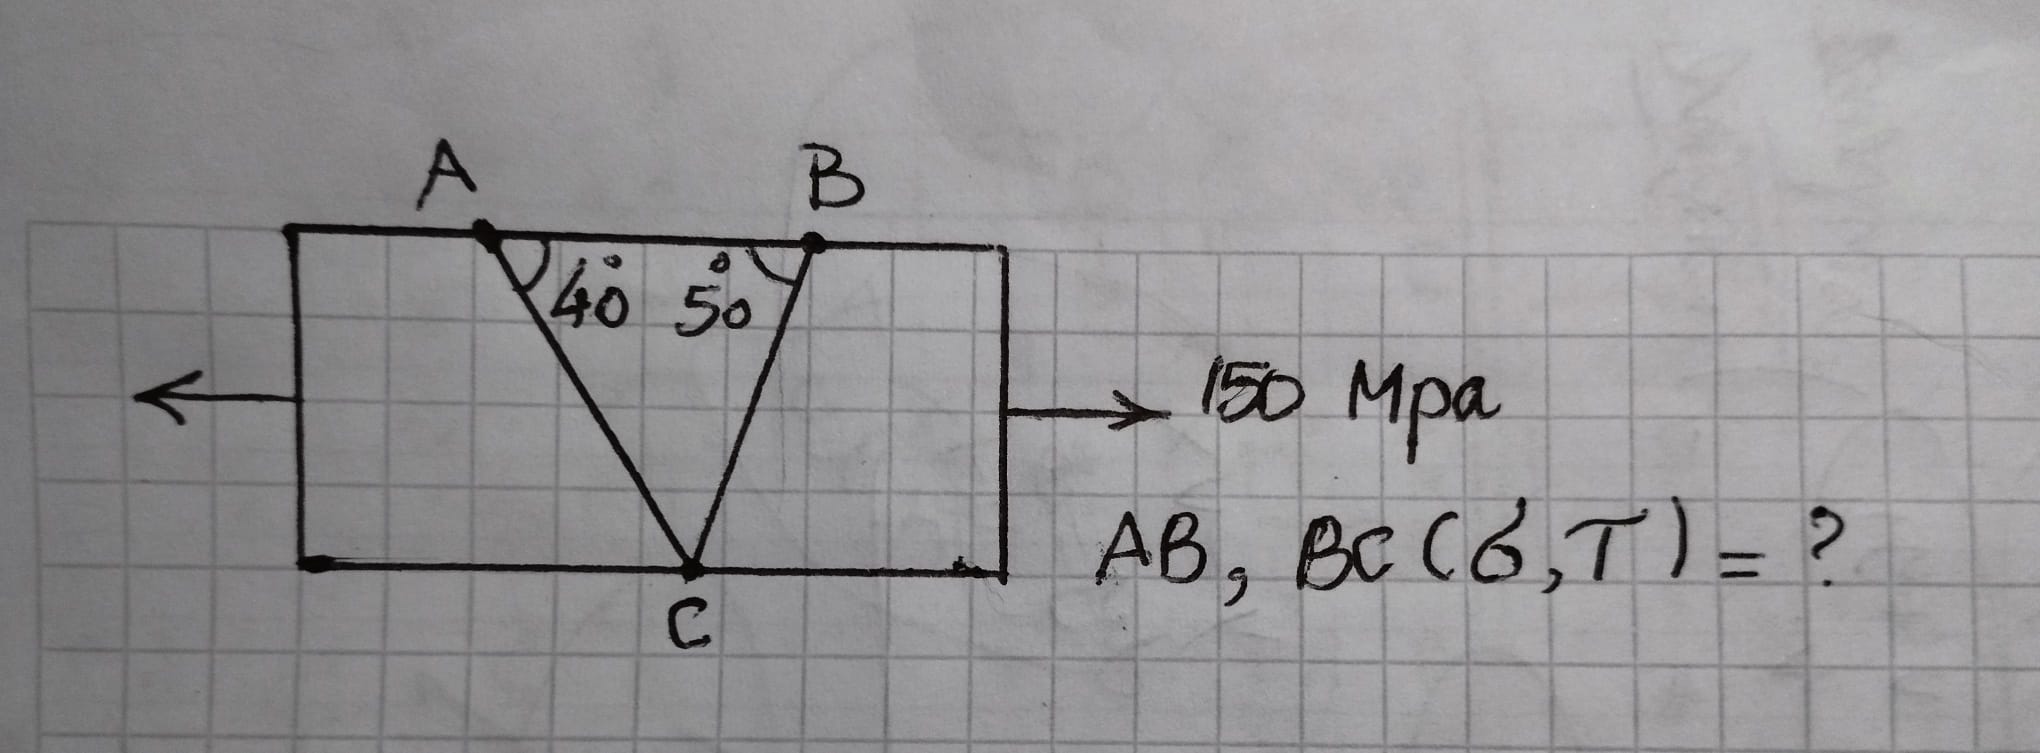 A B
40° 50°
150 Mpa
AB, BC (σ, τ) = ?
C